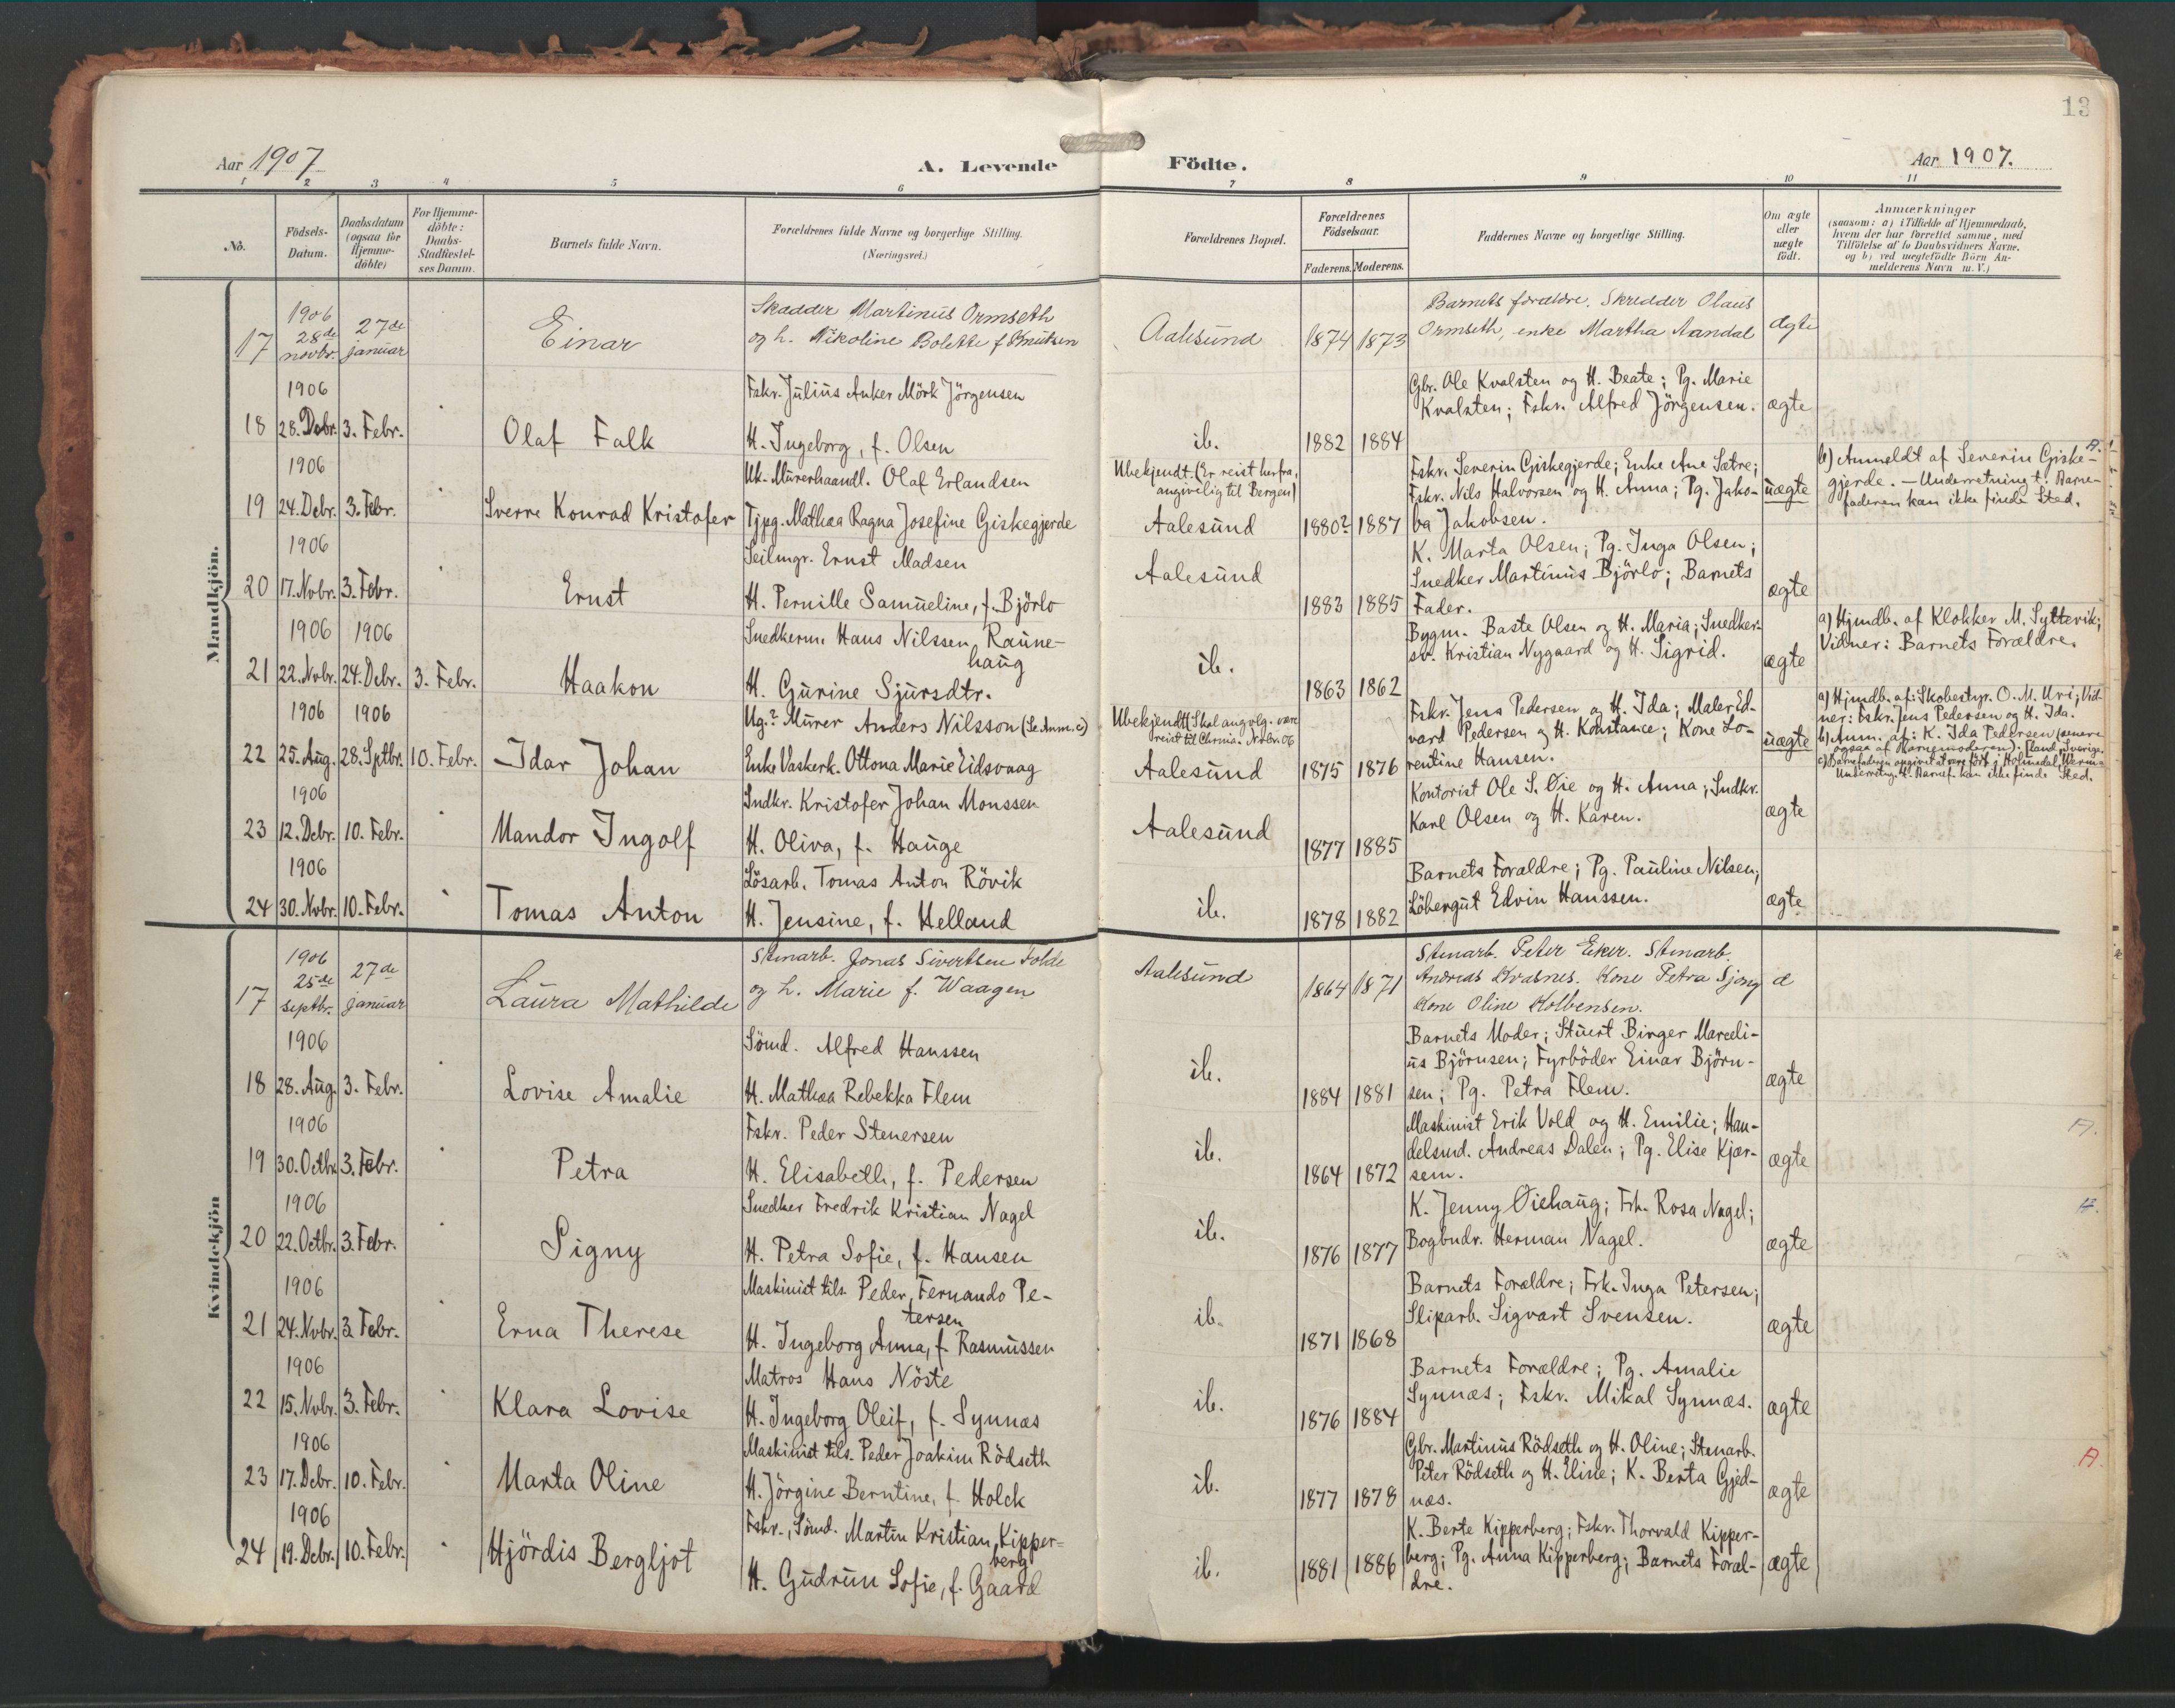 13
Aar 1907
A. Levende Födte.
Aar 1907.
1 2 3 4 5 6 7 8 9 10 11
No.
Födsels-Datum.
Daabsdatum (ogsaa for Hjemme-döbte)
For Hjemme-döbte: Daabs-Stadfæstel-ses Datum.
Barnets fulde Navn.
Forældrenes fulde Navne og borgerlige Stilling. (Næringsvei.)
Forældrenes Bopæl.
Forældrenes Födselsaar.
Faderens. Moderens.
Faddernes Navne og borgerlige Stilling.
Om ægte eller uægte födt.
Anmærkninger
(saasom: a) i Tilfælde af Hjemmedaab,
hvem der har forrettet samme, med
Tilföielse af to Daabsvidners Navne,
og b) ved uægtefödte Börn An-
melderens Navn m. V.)
Mandkjön.
17 1906 28de novbr. 27de januar Einar
Skrædder Martinus Ormseth
og h. Nikoline Bolette f. Knutsen
Aalesund 1874 1873
Barnets forældre. Skrædder Olaus
Ormseth, enke Martha Aandal
ægte
18 1906 28. Debr. 3. Febr. Olaf Falk
Fskr. Julius Anker Mörk Jörgensen
H. Ingeborg, f. Olsen
ib. 1882 1884
Gbr. Ole Kvalsten og H. Beate; Pg. Marie
Kvalsten; Fskr. Alfred Jörgensen.
ægte
19 1906 24. Debr. 3. Febr. Sverre Konrad Kristofer
Uk. Murerhaandl. Olaf Erlandsen
Tjpg. Mathea Ragna Josefine Giskegjerde
Ubekjendt. (Er reist herfra,
angivelig til Bergen)
Aalesund 1880? 1887
Fskr. Severin Giskegjerde; Enke Ane Sætre;
Fskr. Nils Halvorsen og H. Anna; Pg. Jako-
ba Jakobsen.
uægte
A.
b) Anmeldt af Severin Giske-
gjerde. – Underretning t. Barne-
faderen kan ikke finde Sted.
20 1906 17. Novbr. 3. Febr. Ernst
Seilmgr. Ernst Madsen
H. Pernille Samueline, f. Björlo
Aalesund 1883 1885
K. Marta Olsen; Pg. Inga Olsen;
Snedker Martinus Björlo; Barnets
Fader.
ægte
21 1906 22. Novbr. 1906 24. Debr. 3. Febr. Haakon
Snedkerm. Hans Nilssen Raune-
haug
H. Gurine Sjursdtr.
ib. 1863 1862
Bygm. Baste Olsen og H. Maria; Snedker-
sv. Kristian Nygaard og H. Sigrid.
ægte
a) Hjmdb. af Klokker M. Syltevik;
Vidner: Barnets Forældre.
22 1906 25. Aug. 1906 28. Sptbr. 10. Febr. Idar Johan
Ug.? Murer Anders Nilsson (Se Anm. c)
Enke Vaskerk. Ottona Marie Eidsvaag
Ubekjendt (Skal angvlg. være
reist til Chrnia. Novbr. 06
Aalesund 1875 1876
Fskr. Jens Pedersen og H. Ida; Maler Ed-
vard Pedersen og H. Konstance; Kone Lo-
rentine Hansen.
uægte
a) Hjmdb. af: Skobestyr. O. M. Uri; Vid-
ner: Fskr. Jens Pedersen og H. Ida.
b) Anm. af: K. Ida Pedersen (senere
ogsaa af Barnemoderen).
c) Barnefaderen angivet at være född i Holmedal,
Underretng. t. Barnef. kan ikke finde Sted.
23 1906 12. Debr. 10. Febr. Mandor Ingolf
Sndkr. Kristofer Johan Monssen
H. Oliva, f. Hauge
Aalesund 1877 1885
Kontorist Ole S. Øie og H. Anna; Sndkr.
Karl Olsen og H. Karen.
ægte
24 1906 30. Novbr. 10. Febr. Tomas Anton
Lösarb. Tomas Anton Rövik
H. Jensine, f. Helland
ib. 1878 1882
Barnets Forældre; Pg. Pauline Nilsen;
Löbergut Edvin Hanssen.
ægte
Kvindekjön
17 1906 25de septbr. 27de januar Laura Mathilde
Stenarb. Jonas Sivertsen Folde
og h. Marie f. Waagen
Aalesund 1864 1871
Stenarb. Peter Eker. Stenarb.
Andreas Kvasnes. Kone Petra Sjong
Kone Oline Kolbensen.
æ
18 1906 28. Aug. 3. Febr. Lovise Amalie
Sömd. Alfred Hanssen
H. Mathea Rebekka Flem
ib. 1884 1881
Barnets Moder; Stuert Birger Marceli-
us Björnsen; Fyrböder Einar Björn-
sen; Pg. Petra Flem.
ægte
19 1906 30. Octbr. 3. Febr. Petra
Fskr. Peder Stenersen
H. Elisabeth, f. Pedersen
ib. 1864 1872
Maskinist Erik Vold og H. Emilie; Han-
delsmd. Andreas Dalen; Pg. Elise Kjær-
sem.
ægte
A.
20 1906 22. Octbr. 3. Febr. Signy
Snedker Fredrik Kristian Nagel
H. Petra Sofie, f. Hansen
ib. 1876 1877
K. Jenny Øiehaug; Frk. Rosa Nagel;
Bogbndr. Herman Nagel.
ægte
21 1906 24. Novbr. 3. Febr. Erna Therese
Maskinist tils. Peder Fernando Pe-
tersen
H. Ingeborg Anna, f. Rasmussen
ib. 1871 1868
Barnets Forældre; Frk. Inga Petersen;
Sliparb. Sigvart Svensen.
ægte
22 1906 15. Novbr. 3. Febr. Klara Lovise
Matros Hans Nöste
H. Ingeborg Oleif, f. Synnæs
ib. 1876 1884
Barnets Forældre; Pg. Amalie
Synnæs; Fskr. Mikal Synnæs.
ægte
23 1906 17. Debr. 10. Febr. Marta Oline
Maskinist tils. Peder Joakim Rödseth
H. Jörgine Berntine, f. Holck
ib. 1877 1878
Gbr. Martinus Rödseth og H. Oline; Stenarb.
Peter Rödseth og H. Eline; K. Berta Gjed-
næs.
ægte
A.
24 1906 19. Debr. 10. Febr. Hjördis Bergljot
Fskr., Sömd. Martin Kristian Kipper-
berg
H. Gudrun Sofie, f. Gaard
ib. 1881 1886
K. Berte Kipperberg; Fskr. Thorvald Kipper-
berg; Pg. Anna Kipperberg; Barnets Foræl-
dre.
ægte